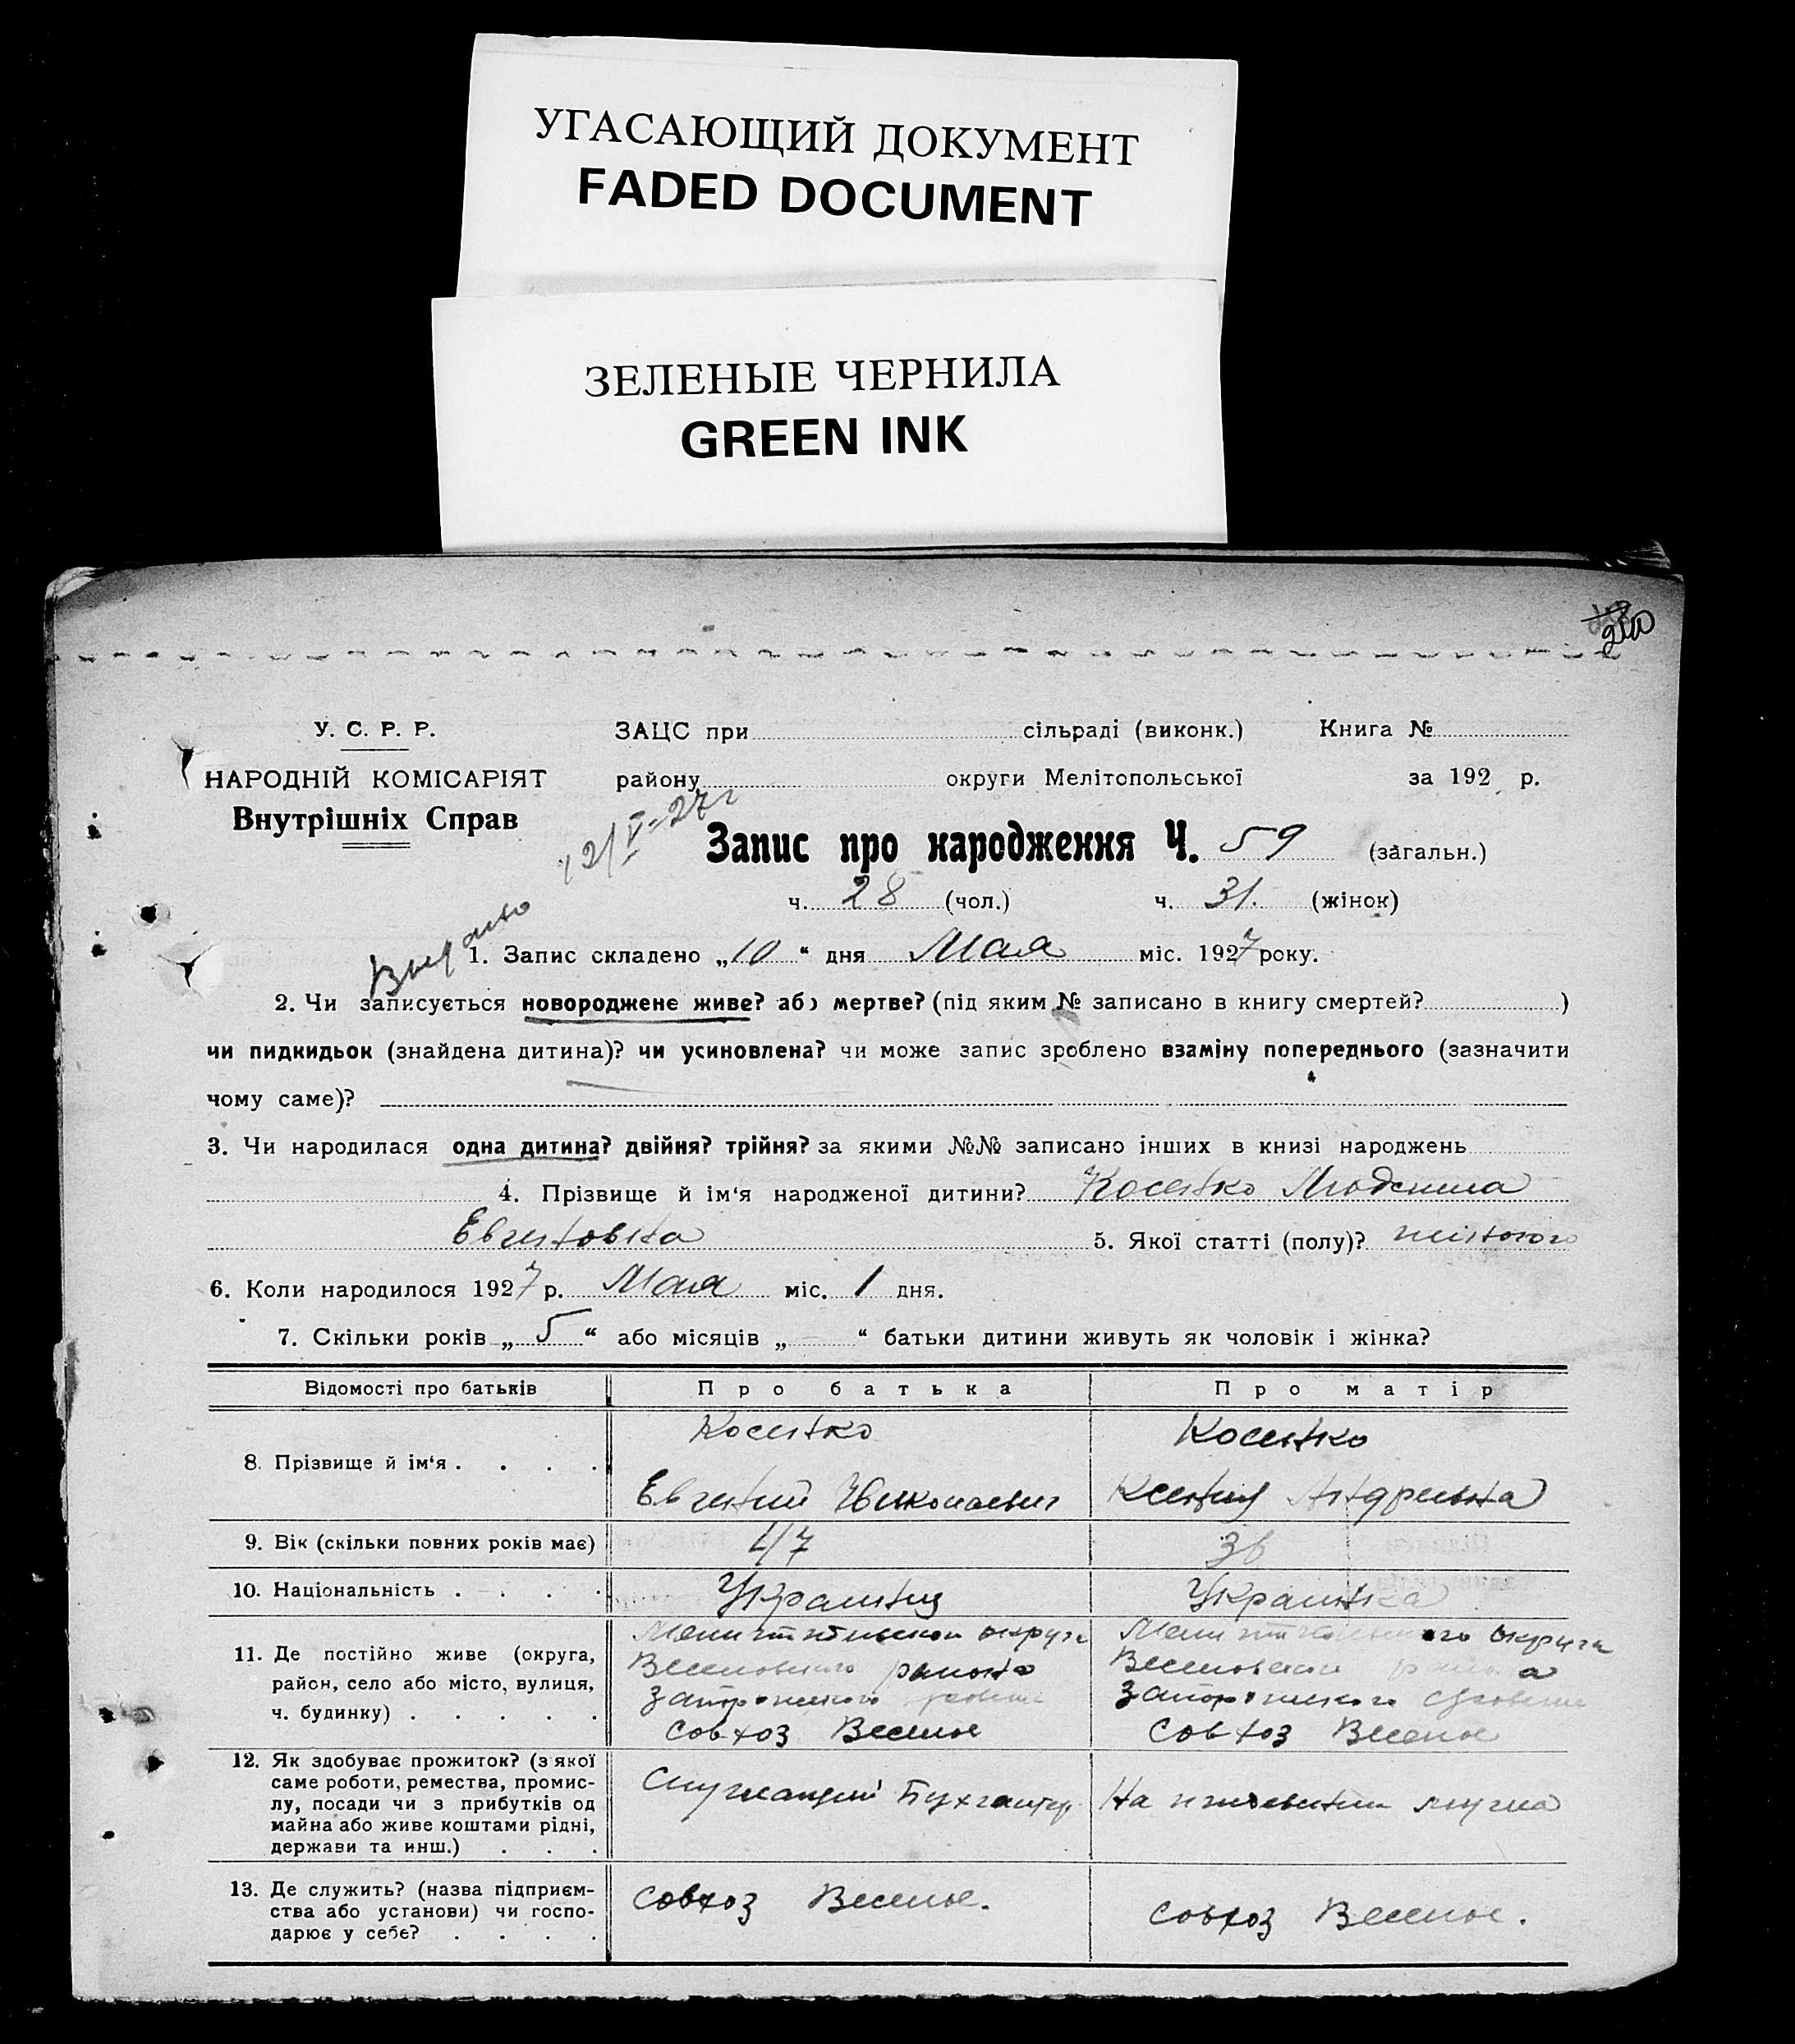 УГАСАЮЩИЙ ДОКУМЕНТ
FADED DOCUMENT
ЗЕЛЕНЫЕ ЧЕРНИЛА
GREEN INK
210
У. С. Р. Р.
НАРОДНІЙ КОМІСАРІЯТ
Внутрішніх Справ
ЗАЦС при сільраді (виконк.) Книга №
району округи Мелітопольської за 192 р.
12/V-27г
Запис про народження Ч. 59 (загальн.)
ч. 28 (чол.) ч. 31. (жінок)
1. Запис складено „10“ дня Мая міс. 1927 року.
2. Чи записується новороджене живе? або мертве? (під яким № записано в книгу смертей? )
чи пидкидьок (знайдена дитина)? чи усиновлена? чи може запис зроблено взаміну попереднього (зазначити
чому саме)?
3. Чи народилася одна дитина? двійня? трійня? за якими №№ записано інших в книзі народжень
4. Прізвище й ім‘я народженої дитини? Косенко Людмила
Евгеновна 5. Якої статті (полу)? женского
6. Коли народилося 1927 р. Мая міс. 1 дня.
7. Скільки років „5“ або місяців „-“ батьки дитини живуть як чоловік і жінка?
Відомості про батьків Про батька Про матір
8. Прізвище й ім‘я . . . .
Косенко
Евгений Николаевич
Косенко
Ксения Андреевна
9. Вік (скільки повних років має) 47 36
10. Національність . . . . Украинец Украинка
11. Де постійно живе (округа,
район, село або місто, вулиця,
ч. будинку) . . . . .
округа
Веселовского района
Запорожского
Совхоз Веселое
округа
Веселовского района
Запорожского
Совхоз Веселое
12. Як здобуває прожиток? (з якої
саме роботи, ремества, промис-
лу, посади чи з прибутків од
майна або живе коштами рідні,
держави та инш.) . . .
Служащий Бухгалтер
На иждевении мужа
13. Де служить? (назва підприєм-
ства або установи) чи госпо-
дарює у себе? . . . .
Совхоз Веселое.
Совхоз Веселое.